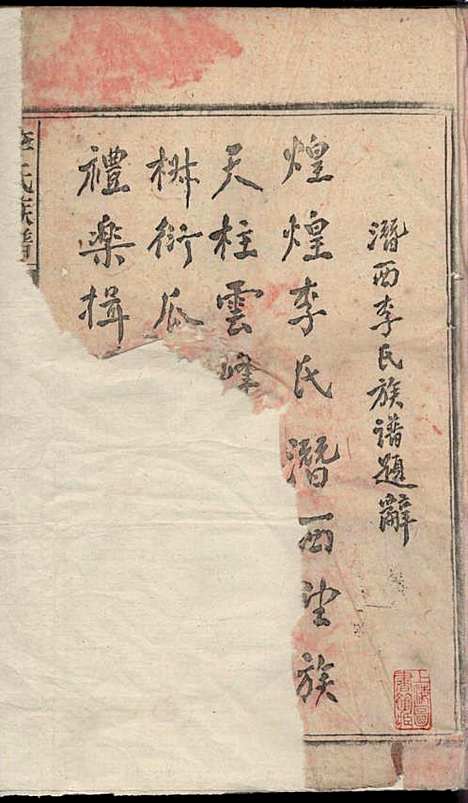 潛西李氏族譜題辭
煌煌李氏潛西望族
天柱雲峰
椒衍瓜
禮樂揖
李氏族譜